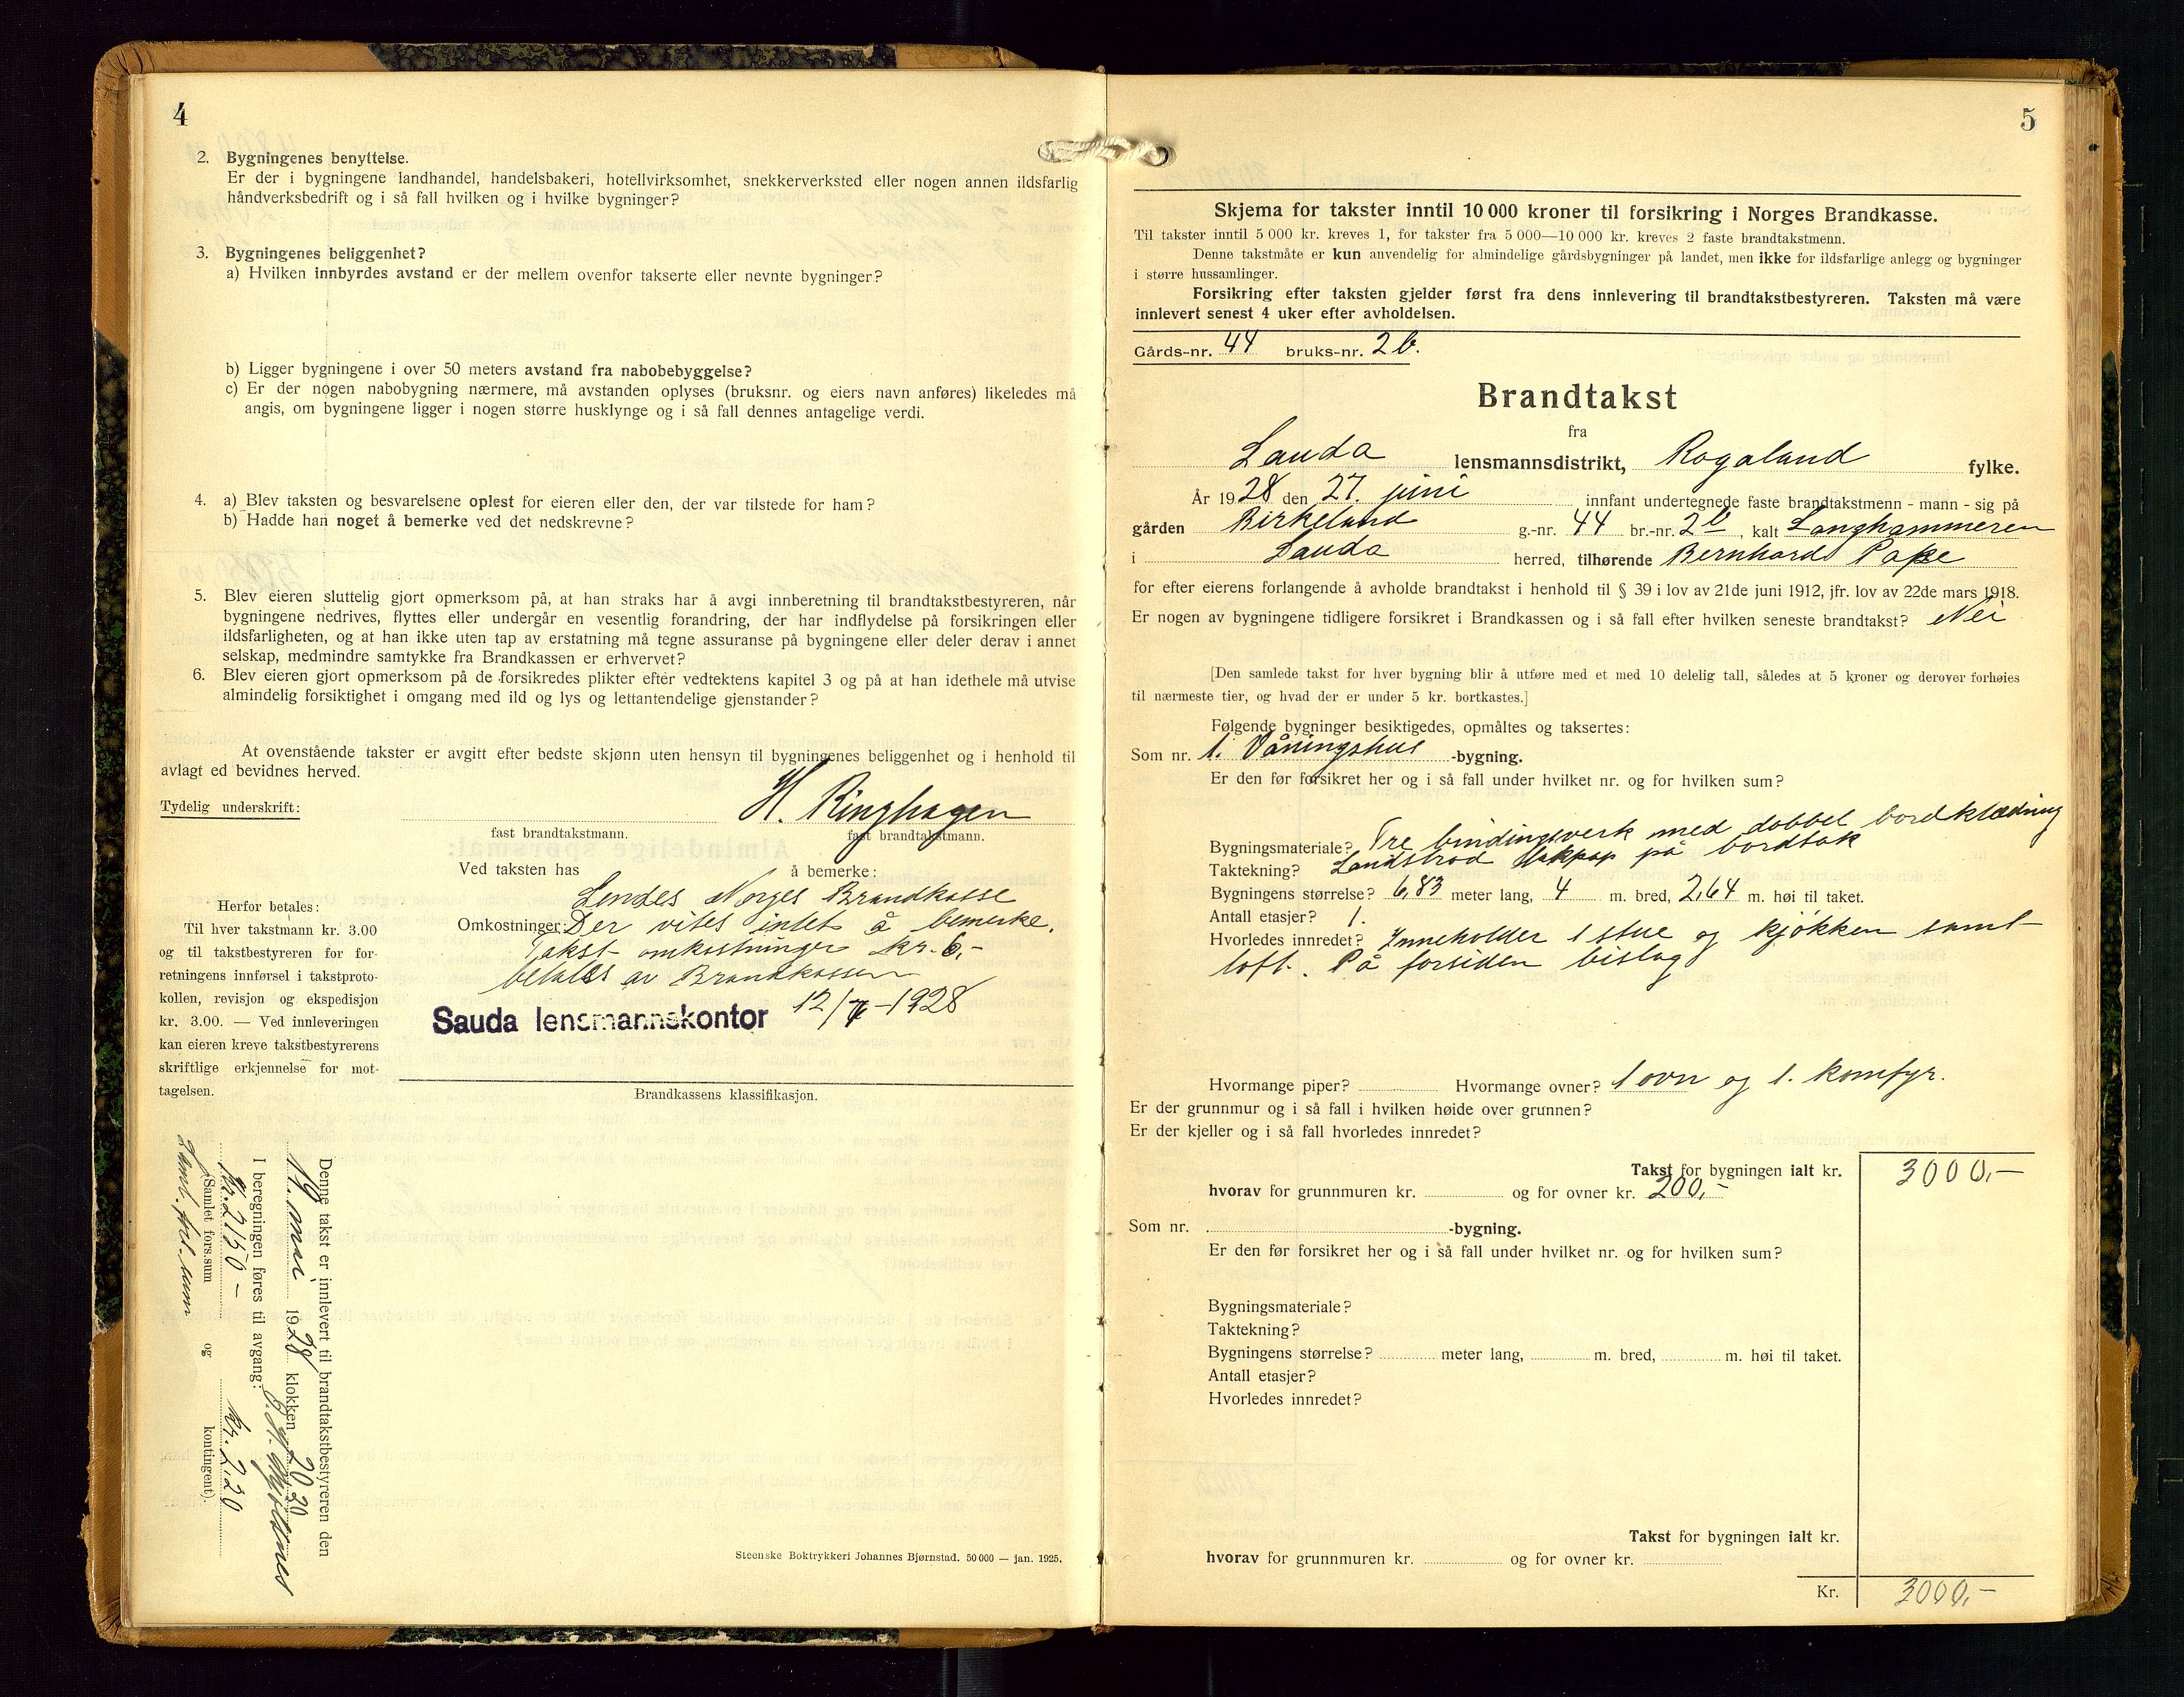 4
2. Bygningenes benyttelse.
Er der i bygningene landhandel, handelsbakeri, hotellvirksomhet, snekkerverksted eller nogen annen ildsfarlig
håndverksbedrift og i så fall hvilken og i hvilke bygninger?
3. Bygningenes beliggenhet?
a) Hvilken innbyrdes avstand er der mellem ovenfor takserte eller nevnte bygninger?
b) Ligger bygningene i over 50 meters avstand fra nabobebyggelse?
c) Er der nogen nabobygning nærmere, må avstanden oplyses (bruksnr. og eiers navn anføres) likeledes må
angis, om bygningene ligger i nogen større husklynge og i så fall dennes antagelige verdi.
4. a) Blev taksten og besvarelsene oplest for eieren eller den, der var tilstede for ham?
b) Hadde han noget å bemerke ved det nedskrevne?
5. Blev eieren sluttelig gjort opmerksom på, at han straks har å avgi innberetning til brandtakstbestyreren, når
bygningene nedrives, flyttes eller undergår en vesentlig forandring, der har indflydelse på forsikringen eller
ildsfarligheten, og at han ikke uten tap av erstatning må tegne assuranse på bygningene eller deler derav i annet
selskap, medmindre samtykke fra Brandkassen er erhvervet?
6. Blev eieren gjort opmerksom på de forsikredes plikter efter vedtektens kapitel 3 og på at han idethele må utvise
almindelig forsiktighet i omgang med ild og lys og lettantendelige gjenstander?
At ovenstående takster er avgitt efter bedste skjønn uten hensyn til bygningenes beliggenhet og i henhold til
avlagt ed bevidnes herved.
Tydelig underskrift: H. Ringhagen
fast brandtakstmann. fast brandtakstmann.
Ved taksten has å bemerke:
Sendes Norges Brandkasse
Omkostninger: Der vites intet å bemerke.
Takst omkostninger kr. 6,-
betales av Brandkassen
Sauda lensmannskontor 12/7-1928
Brandkassens klassifikasjon.
Herfor betales:
Til hver takstmann kr. 3.00
og til takstbestyreren for for-
retningens innførsel i takstproto-
kollen, revisjon og ekspedisjon
kr. 3.00. — Ved innleveringen
kan eieren kreve takstbestyrerens
skriftlige erkjennelse for mot-
tagelsen.
Denne takst er innlevert til brandtakstbestyreren den
19. mai 1928 klokken 20 30
I beregningen føres til avgang:
kr. 2150 - kr. 2.20
(Samlet fors.sum og kontingent).
Saml. sum
Steenske Boktrykkeri Johannes Bjørnstad. 50 000 — jan. 1925.
5
Skjema for takster inntil 10 000 kroner til forsikring i Norges Brandkasse.
Til takster inntil 5 000 kr. kreves 1, for takster fra 5 000—10 000 kr. kreves 2 faste brandtakstmenn.
Denne takstmåte er kun anvendelig for almindelige gårdsbygninger på landet, men ikke for ildsfarlige anlegg og bygninger
i større hussamlinger.
Forsikring efter taksten gjelder først fra dens innlevering til brandtakstbestyreren. Taksten må være
innlevert senest 4 uker efter avholdelsen.
Gårds-nr. 44 bruks-nr. 2 b.
Brandtakst
fra
Sauda lensmannsdistrikt, Rogaland fylke.
År 1928 den 27. juni innfant undertegnede faste brandtakstmenn - mann - sig på
gården Birkeland g.-nr. 44 br.-nr. 2 b, kalt Langhammeren
i Sauda herred, tilhørende Bernhard Pape
for efter eierens forlangende å avholde brandtakst i henhold til § 39 i lov av 21de juni 1912, jfr. lov av 22de mars 1918.
Er nogen av bygningene tidligere forsikret i Brandkassen og i så fall efter hvilken seneste brandtakst? Nei
[Den samlede takst for hver bygning blir å utføre med et med 10 delelig tall, således at 5 kroner og derover forhøies
til nærmeste tier, og hvad der er under 5 kr. bortkastes.]
Følgende bygninger besiktigedes, opmåltes og taksertes:
Som nr. 1. Våningshus -bygning.
Er den før forsikret her og i så fall under hvilket nr. og for hvilken sum?
Bygningsmateriale? Tre bindingsverk med dobbel bordklædning
Taktekning? takpap på bordtak
Bygningens størrelse? 6,83 meter lang, 4 m. bred, 2,64 m. høi til taket.
Antall etasjer? 1.
Hvorledes innredet? Inneholder 1 stue og kjøkken samt
loft. På forsiden bislag
Hvormange piper? Hvormange ovner? 1 ovn og 1. komfyr.
Er der grunnmur og i så fall i hvilken høide over grunnen?
Er der kjeller og i så fall hvorledes innredet?
Takst for bygningen ialt kr. 3000,-
hvorav for grunnmuren kr. og for ovner kr. 200,-
Som nr. -bygning.
Er den før forsikret her og i så fall under hvilket nr. og for hvilken sum?
Bygningsmateriale?
Taktekning?
Bygningens størrelse? meter lang, m. bred, m. høi til taket.
Antall etasjer?
Hvorledes innredet?
Takst for bygningen ialt kr.
hvorav for grunnmuren kr. og for ovner kr.
Kr. 3000,-